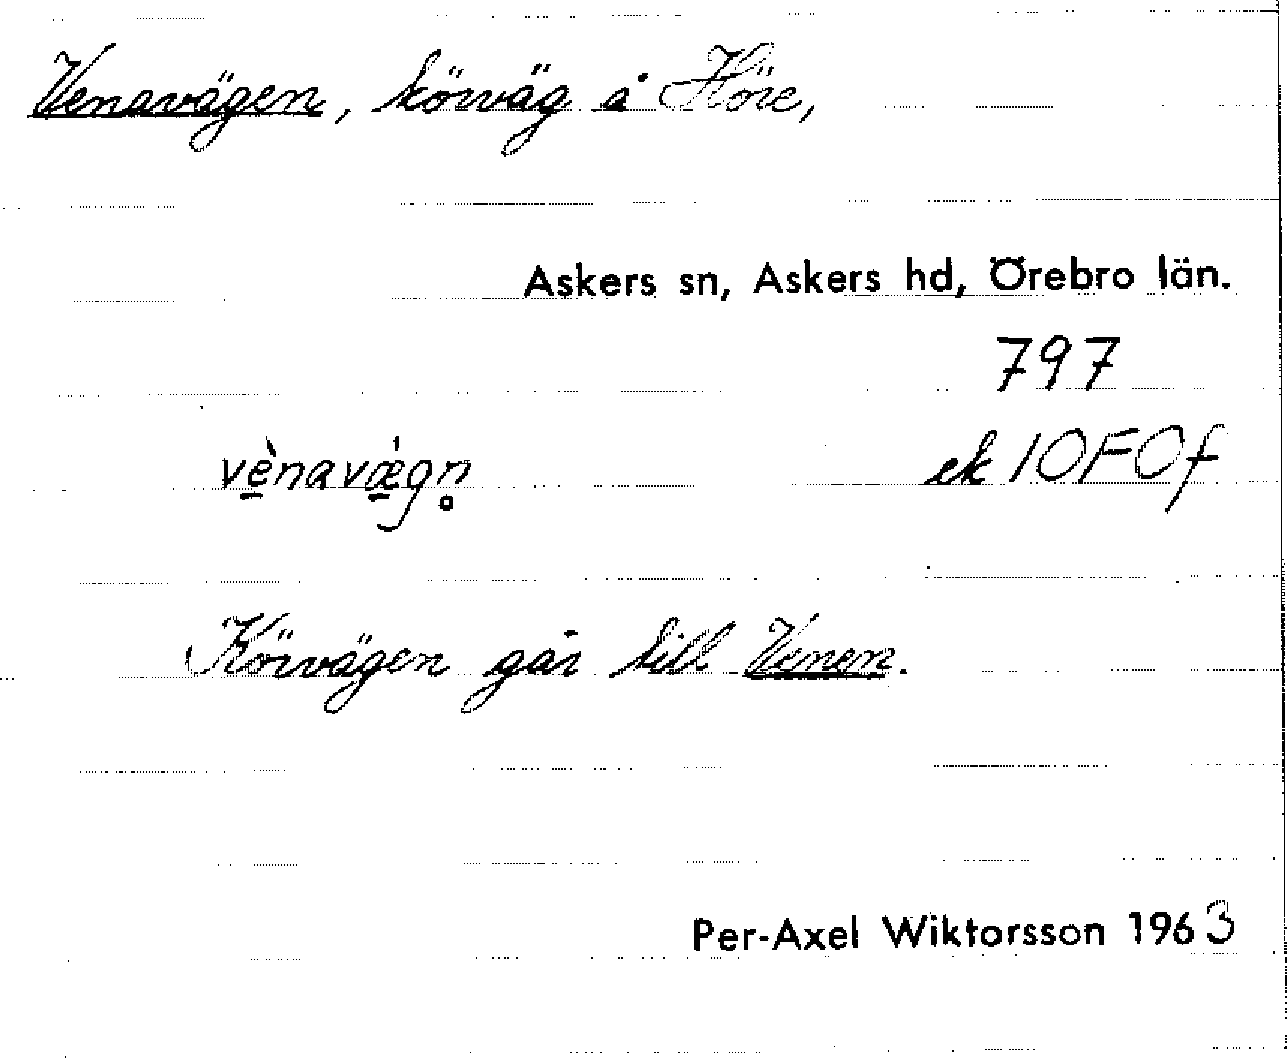 Venavägen, körväg å Höre,
Askers sn, Askers hd, Örebro län.
797
vènavǽgn̥
ek 10F0f
Körvägen går till Venen.
Per-Axel Wiktorsson 1963